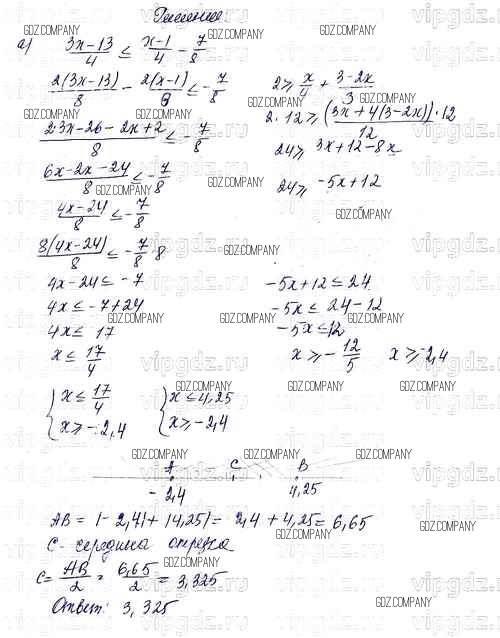 Решение:
а) (3x-13)/4 ≤ (x-1)/4 - 7/8
2(3x-13)/8 - 2(x-1)/8 ≤ -7/8
(2·3x-26-2x+2)/8 ≤ -7/8
(6x-2x-24)/8 ≤ -7/8
(4x-24)/8 ≤ -7/8
8(4x-24)/8 ≤ -7/8 · 8
4x-24 ≤ -7
4x ≤ -7+24
4x ≤ 17
x ≤ 17/4
2 ≥ x/4 + (3-2x)/3
2·12 ≥ (3x+4(3-2x))/12 · 12
24 ≥ 3x+12-8x
24 ≥ -5x+12
-5x+12 ≤ 24
-5x ≤ 24-12
-5x ≤ 12
x ≥ -12/5 x ≥ -2,4
{ x ≤ 17/4 { x ≤ 4,25
x ≥ -2,4 x ≥ -2,4
A C B
-2,4 4,25
AB = |-2,4| + |4,25| = 2,4 + 4,25 = 6,65
C - середина отрезка
C = AB/2 = 6,65/2 = 3,325
Ответ: 3,325
GDZ.COMPANY
vipgdz.ru